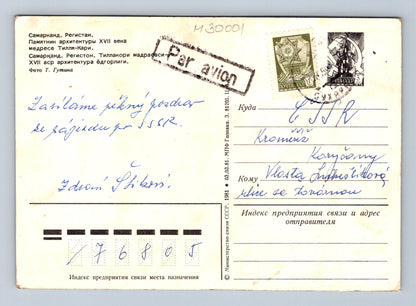 H30001
Самарканд, Регистан.
Памятник архитектуры XVII века
медресе Тилля-Кари.
Самарқанд, Регистон. Тиллакори мадрасаси
XVII аср архитектура ёдгорлиги.
Фото Т. Гутина
Par avion
Zasíláme pěkný pozdrav
ze zájezdu po SSSR.
Zdraví
Куда ČSSR
Kroměříž
Koryčany
Кому Vlasta
ulice za továrnou
Индекс предприятия связи и адрес
отправителя
176805
Индекс предприятия связи места назначения
© Министерство связи СССР. 1981